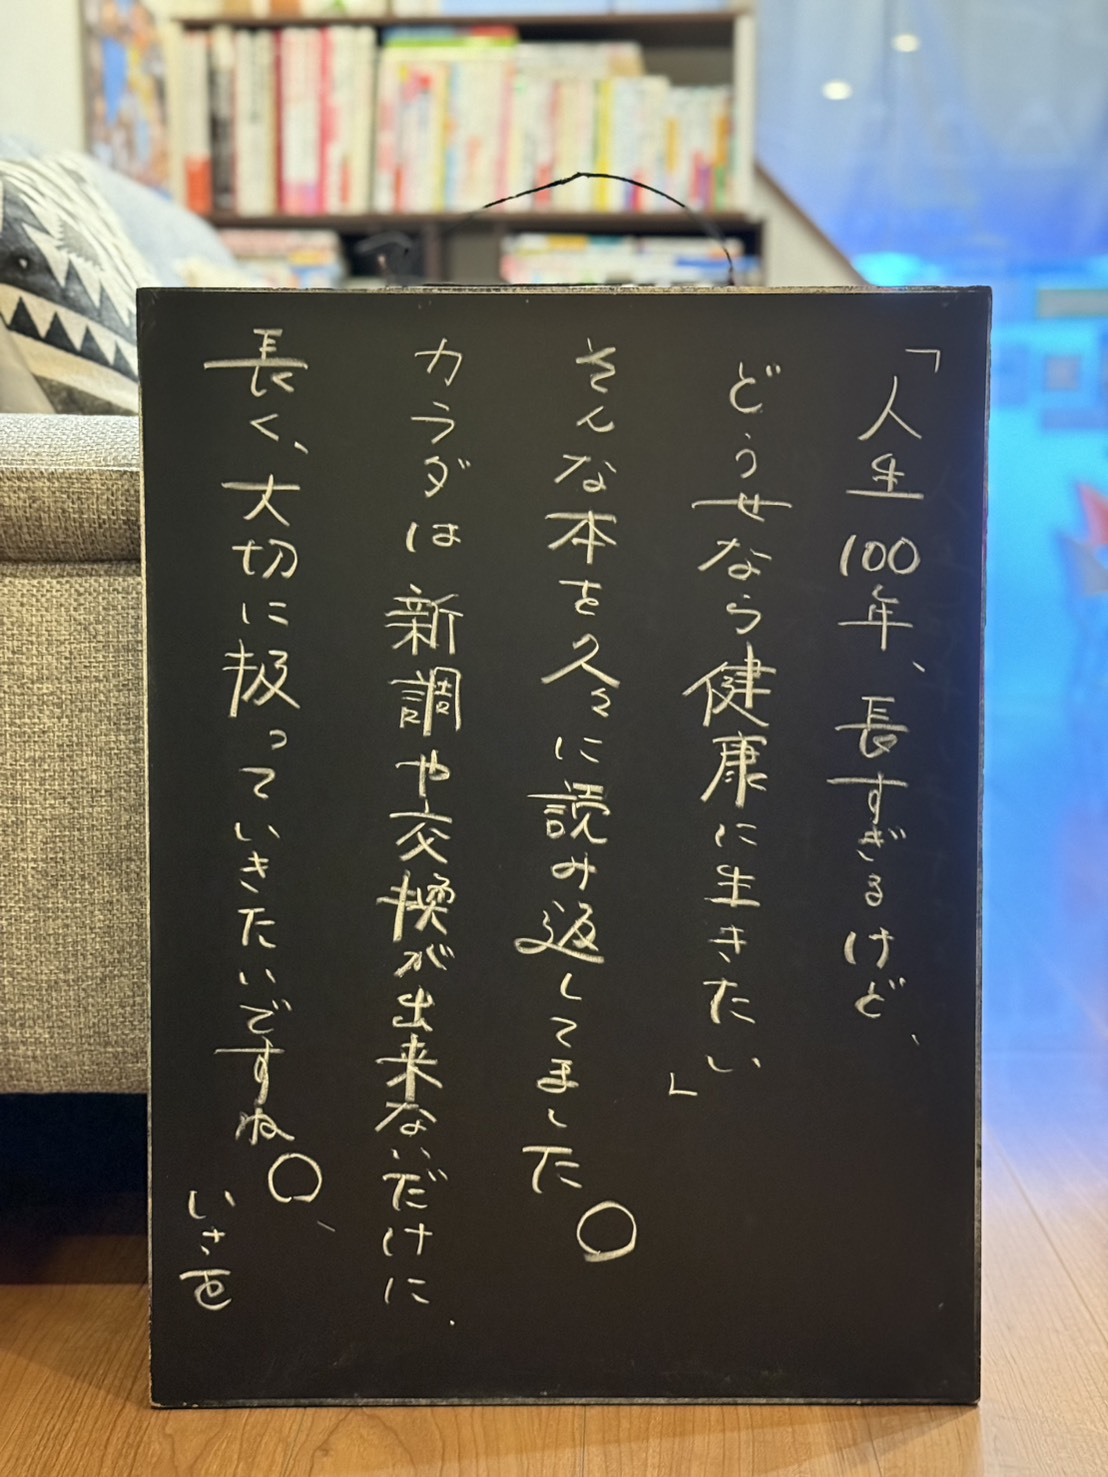 「人生100年、長すぎるけど、
どうせなら健康に生きたい」
そんな本を久々に読み返してました。
カラダは新調や交換が出来ないだけに、
長く、大切に扱っていきたいですね。
いさを